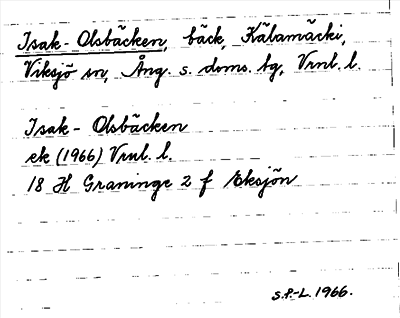 Isak-Olsbäcken, bäck, Kälamäcki,
Viksjö sn, Ång. s. doms. tg, Vrnl. l.
Isak-Olsbäcken
ek (1966) Vrnl. l.
18 H Graninge 2 f Eksjön
S.P.-L. 1966.